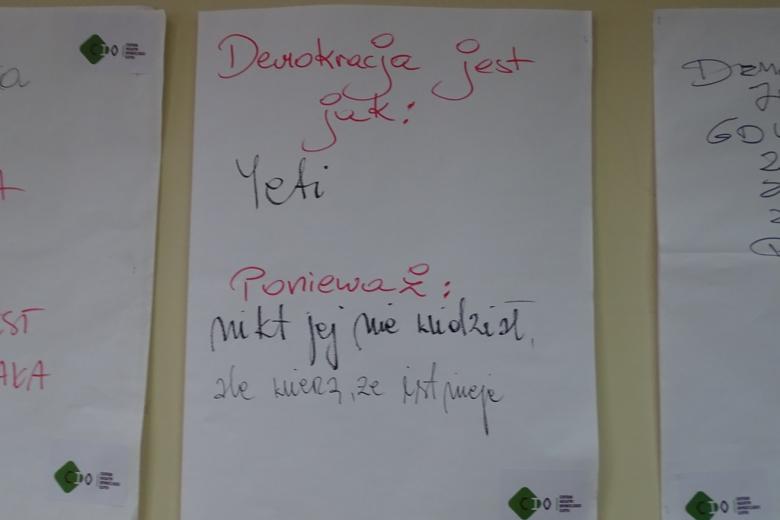 Demokracja jest
jak:
Yeti
Ponieważ:
nikt jej nie widział,
ale wierzą, że istnieje
CDO
EST
AKA
CDO
GDY
CDO
CDO